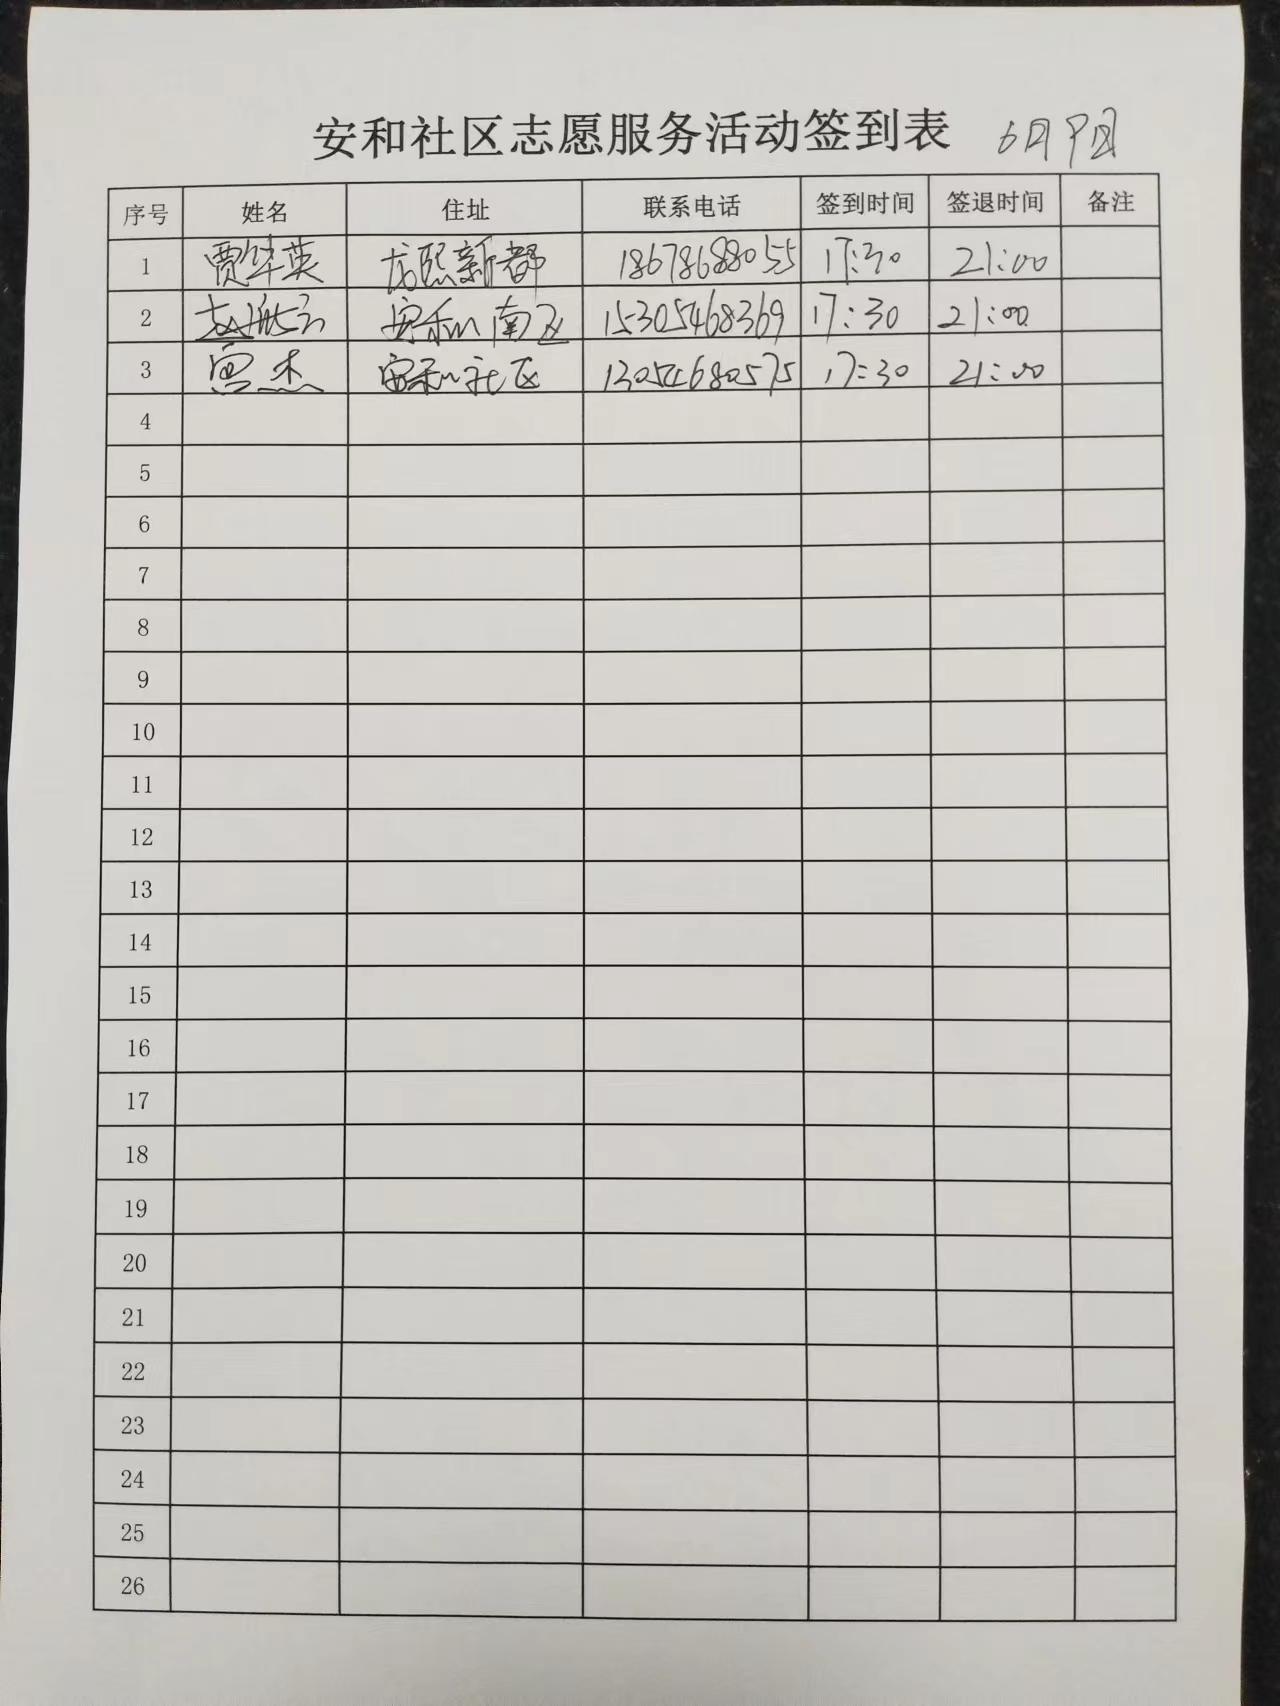 安和社区志愿服务活动签到表 6月9日
序号 姓名 住址 联系电话 签到时间 签退时间 备注
1 贾华英 龙熙新都 18678688055 17:30 21:00
2 赵 安和南区 15305468369 17:30 21:00
3 杰 安和社区 13054680575 17:30 21:00
4
5
6
7
8
9
10
11
12
13
14
15
16
17
18
19
20
21
22
23
24
25
26